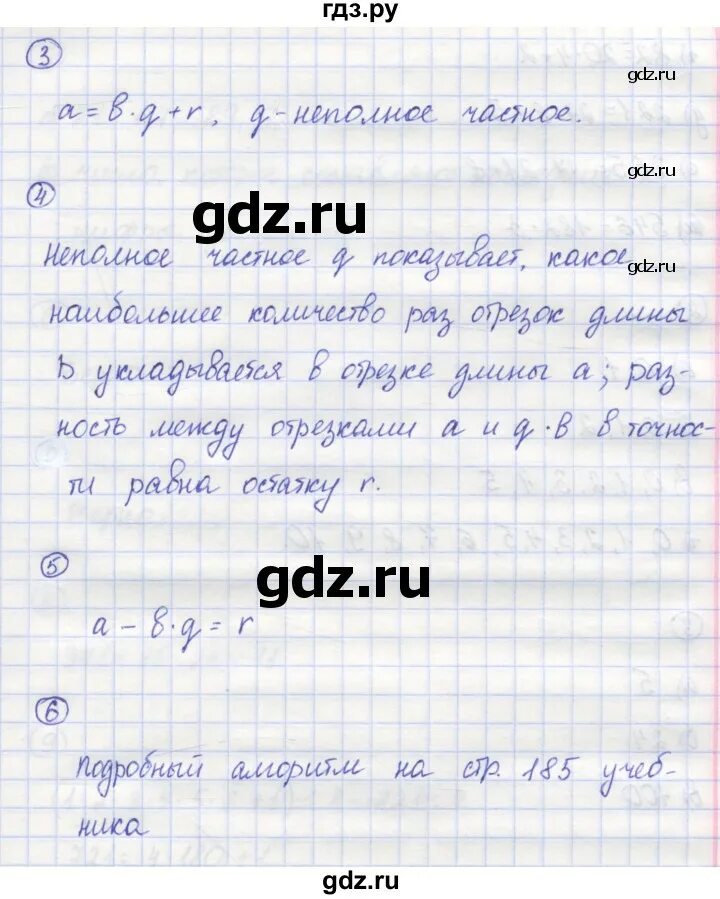 гдз.ру
③
gdz.ru
a = b · q + r, q - неполное частное.
gdz.ru
④
gdz.ru
Неполное частное q показывает, какое
gdz.ru
наибольшее количество раз отрезок длины
b укладывается в отрезке длины a; раз-
ность между отрезками a и q · b в точнос-
ти равна остатку r.
⑤
gdz.ru
a - b · q = r
⑥
Подробный алгоритм на стр. 185 учеб-
ника
gdz.ru